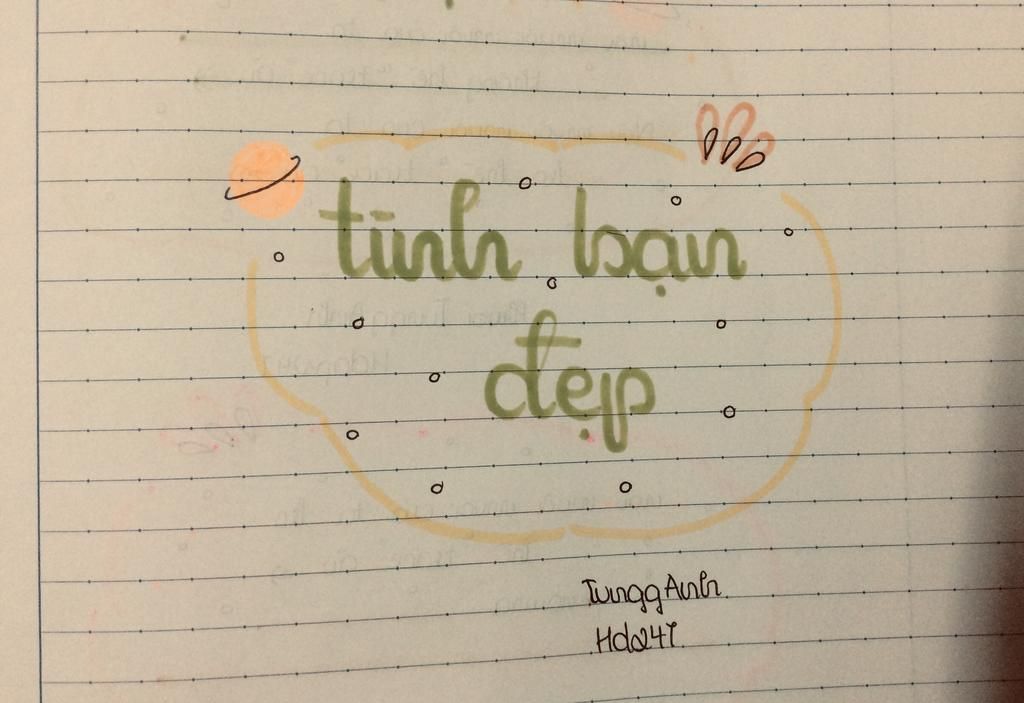 tình bạn
đẹp
TunggAnh
Hdo247